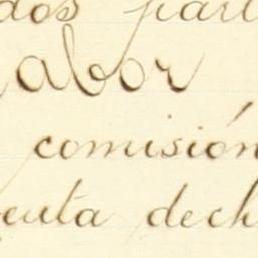 dos part
abor
comisión
enta dech